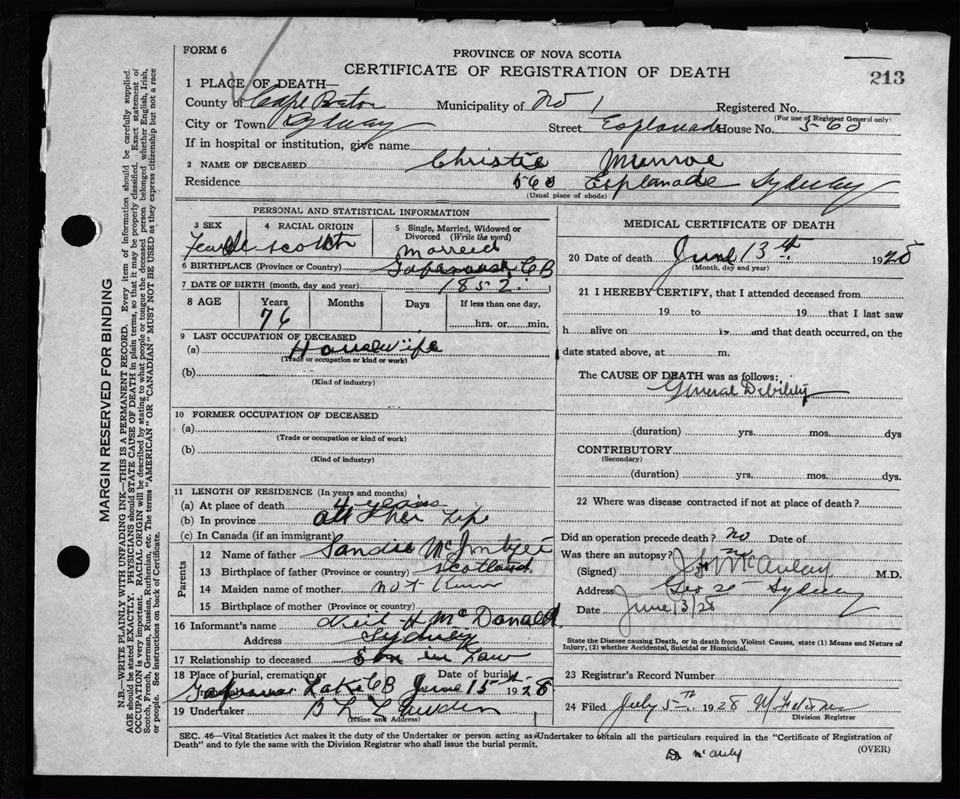 FORM 6
PROVINCE OF NOVA SCOTIA
CERTIFICATE OF REGISTRATION OF DEATH
213
1 PLACE OF DEATH—
County of Cape Breton Municipality of No 1 Registered No.
(For use of Registrar General only)
City or Town Sydney Street Esplanade House No. 560
If in hospital or institution, give name
2 NAME OF DECEASED Christie Munroe
Residence 560 Esplanade Sydney
(Usual place of abode)
PERSONAL AND STATISTICAL INFORMATION
3 SEX Female
4 RACIAL ORIGIN Scotch
5 Single, Married, Widowed or Divorced (Write the word) Married
6 BIRTHPLACE (Province or Country) C B
7 DATE OF BIRTH (month, day and year) 1852
8 AGE Years Months Days If less than one day,
76 hrs. or min.
9 LAST OCCUPATION OF DECEASED
(a) Housewife
(Trade or occupation or kind or work)
(b)
(Kind of industry)
10 FORMER OCCUPATION OF DECEASED
(a)
(Trade or occupation or kind of work)
(b)
(Kind of industry)
11 LENGTH OF RESIDENCE (In years and months)
(a) At place of death 4 years
(b) In province all her life
(c) In Canada (if an immigrant)
Parents
12 Name of father Sandie McIntyre
13 Birthplace of father (Province or country) Scotland
14 Maiden name of mother not known
15 Birthplace of mother (Province or country)
16 Informant's name Neil H McDonald
Address Sydney
17 Relationship to deceased Son in Law
18 Place of burial, cremation or Date of burial
Lake CB June 15th 1928
19 Undertaker
(Name and Address)
MEDICAL CERTIFICATE OF DEATH
20 Date of death June 13th 1928
(Month, day and year)
21 I HEREBY CERTIFY, that I attended deceased from
19 to 19 that I last saw
h alive on 19 and that death occurred, on the
date stated above, at m.
The CAUSE OF DEATH was as follows:
General Debility
(duration) yrs. mos. dys
CONTRIBUTORY
(Secondary)
(duration) yrs. mos. dys
22 Where was disease contracted if not at place of death?
Did an operation precede death? no Date of
Was there an autopsy? no
(Signed) McAulay M.D.
Address Sydney
Date June 13/28
State the Disease causing Death, or in death from Violent Causes, state (1) Means and Nature of
Injury, (2) whether Accidental, Suicidal or Homicidal.
23 Registrar's Record Number
24 Filed July 5th 1928
Division Registrar
SEC. 46—Vital Statistics Act makes it the duty of the Undertaker or person acting as Undertaker to obtain all the particulars required in the "Certificate of Registration of
Death" and to fyle the same with the Division Registrar who shall issue the burial permit.
(OVER)
Dr McAuly
MARGIN RESERVED FOR BINDING
N.B.—WRITE PLAINLY WITH UNFADING INK—THIS IS A PERMANENT RECORD. Every item of information should be carefully supplied.
AGE should be stated EXACTLY. PHYSICIANS should STATE CAUSE OF DEATH in plain terms, so that it may be properly classified. Exact statement of
OCCUPATION is very important. RACIAL ORIGIN will be described by stating to what people or tongue the deceased person belonged whether English, Irish,
Scotch, French, German, Russian, Ruthenian, etc. The terms "AMERICAN" OR "CANADIAN" MUST NOT BE USED as they express citizenship but not a race
or people. See instructions on back of Certificate.